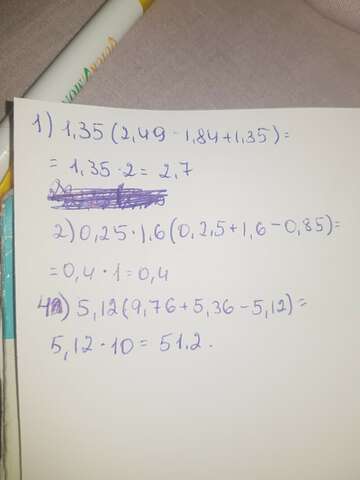 1) 1,35 (2,49 - 1,84 + 1,35) =
= 1,35 · 2 = 2,7
2) 0,25 · 1,6 (0,2,5 + 1,6 - 0,85) =
= 0,4 · 1 = 0,4
4) 5,12 (9,76 + 5,36 - 5,12) =
5,12 · 10 = 51.2.